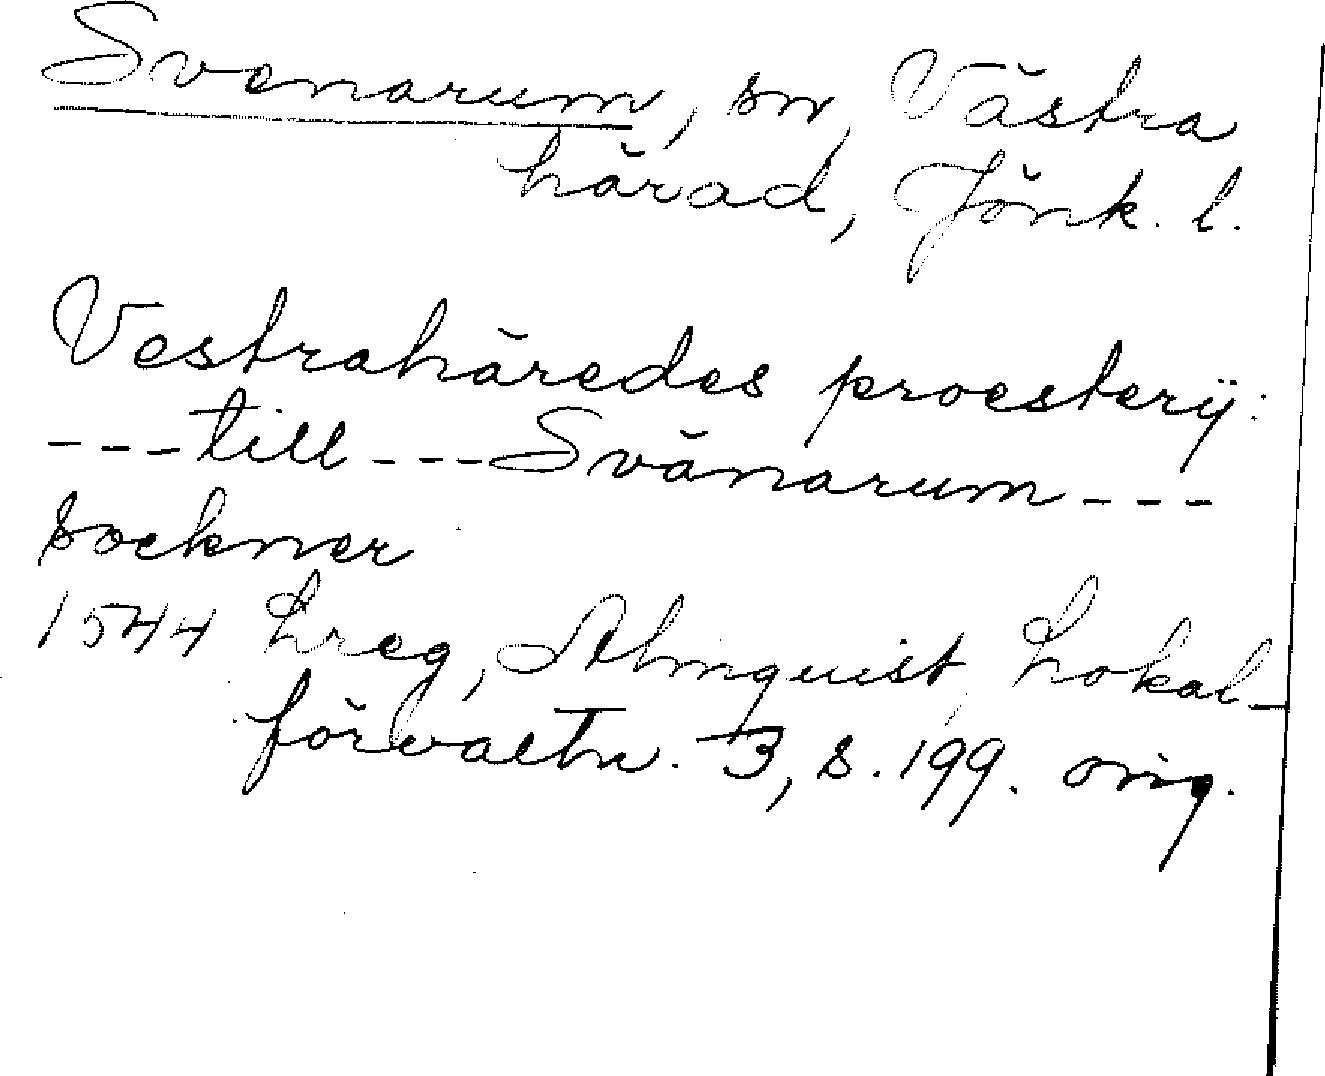 Svenarum, sn, Västra
härad, Jönk. l.
Vestrahäredes proesterij:
---till---Svänarum---
sockner
1544 Lreg, Almquist, Lokal-
förvaltn. 3, s. 199. orig.